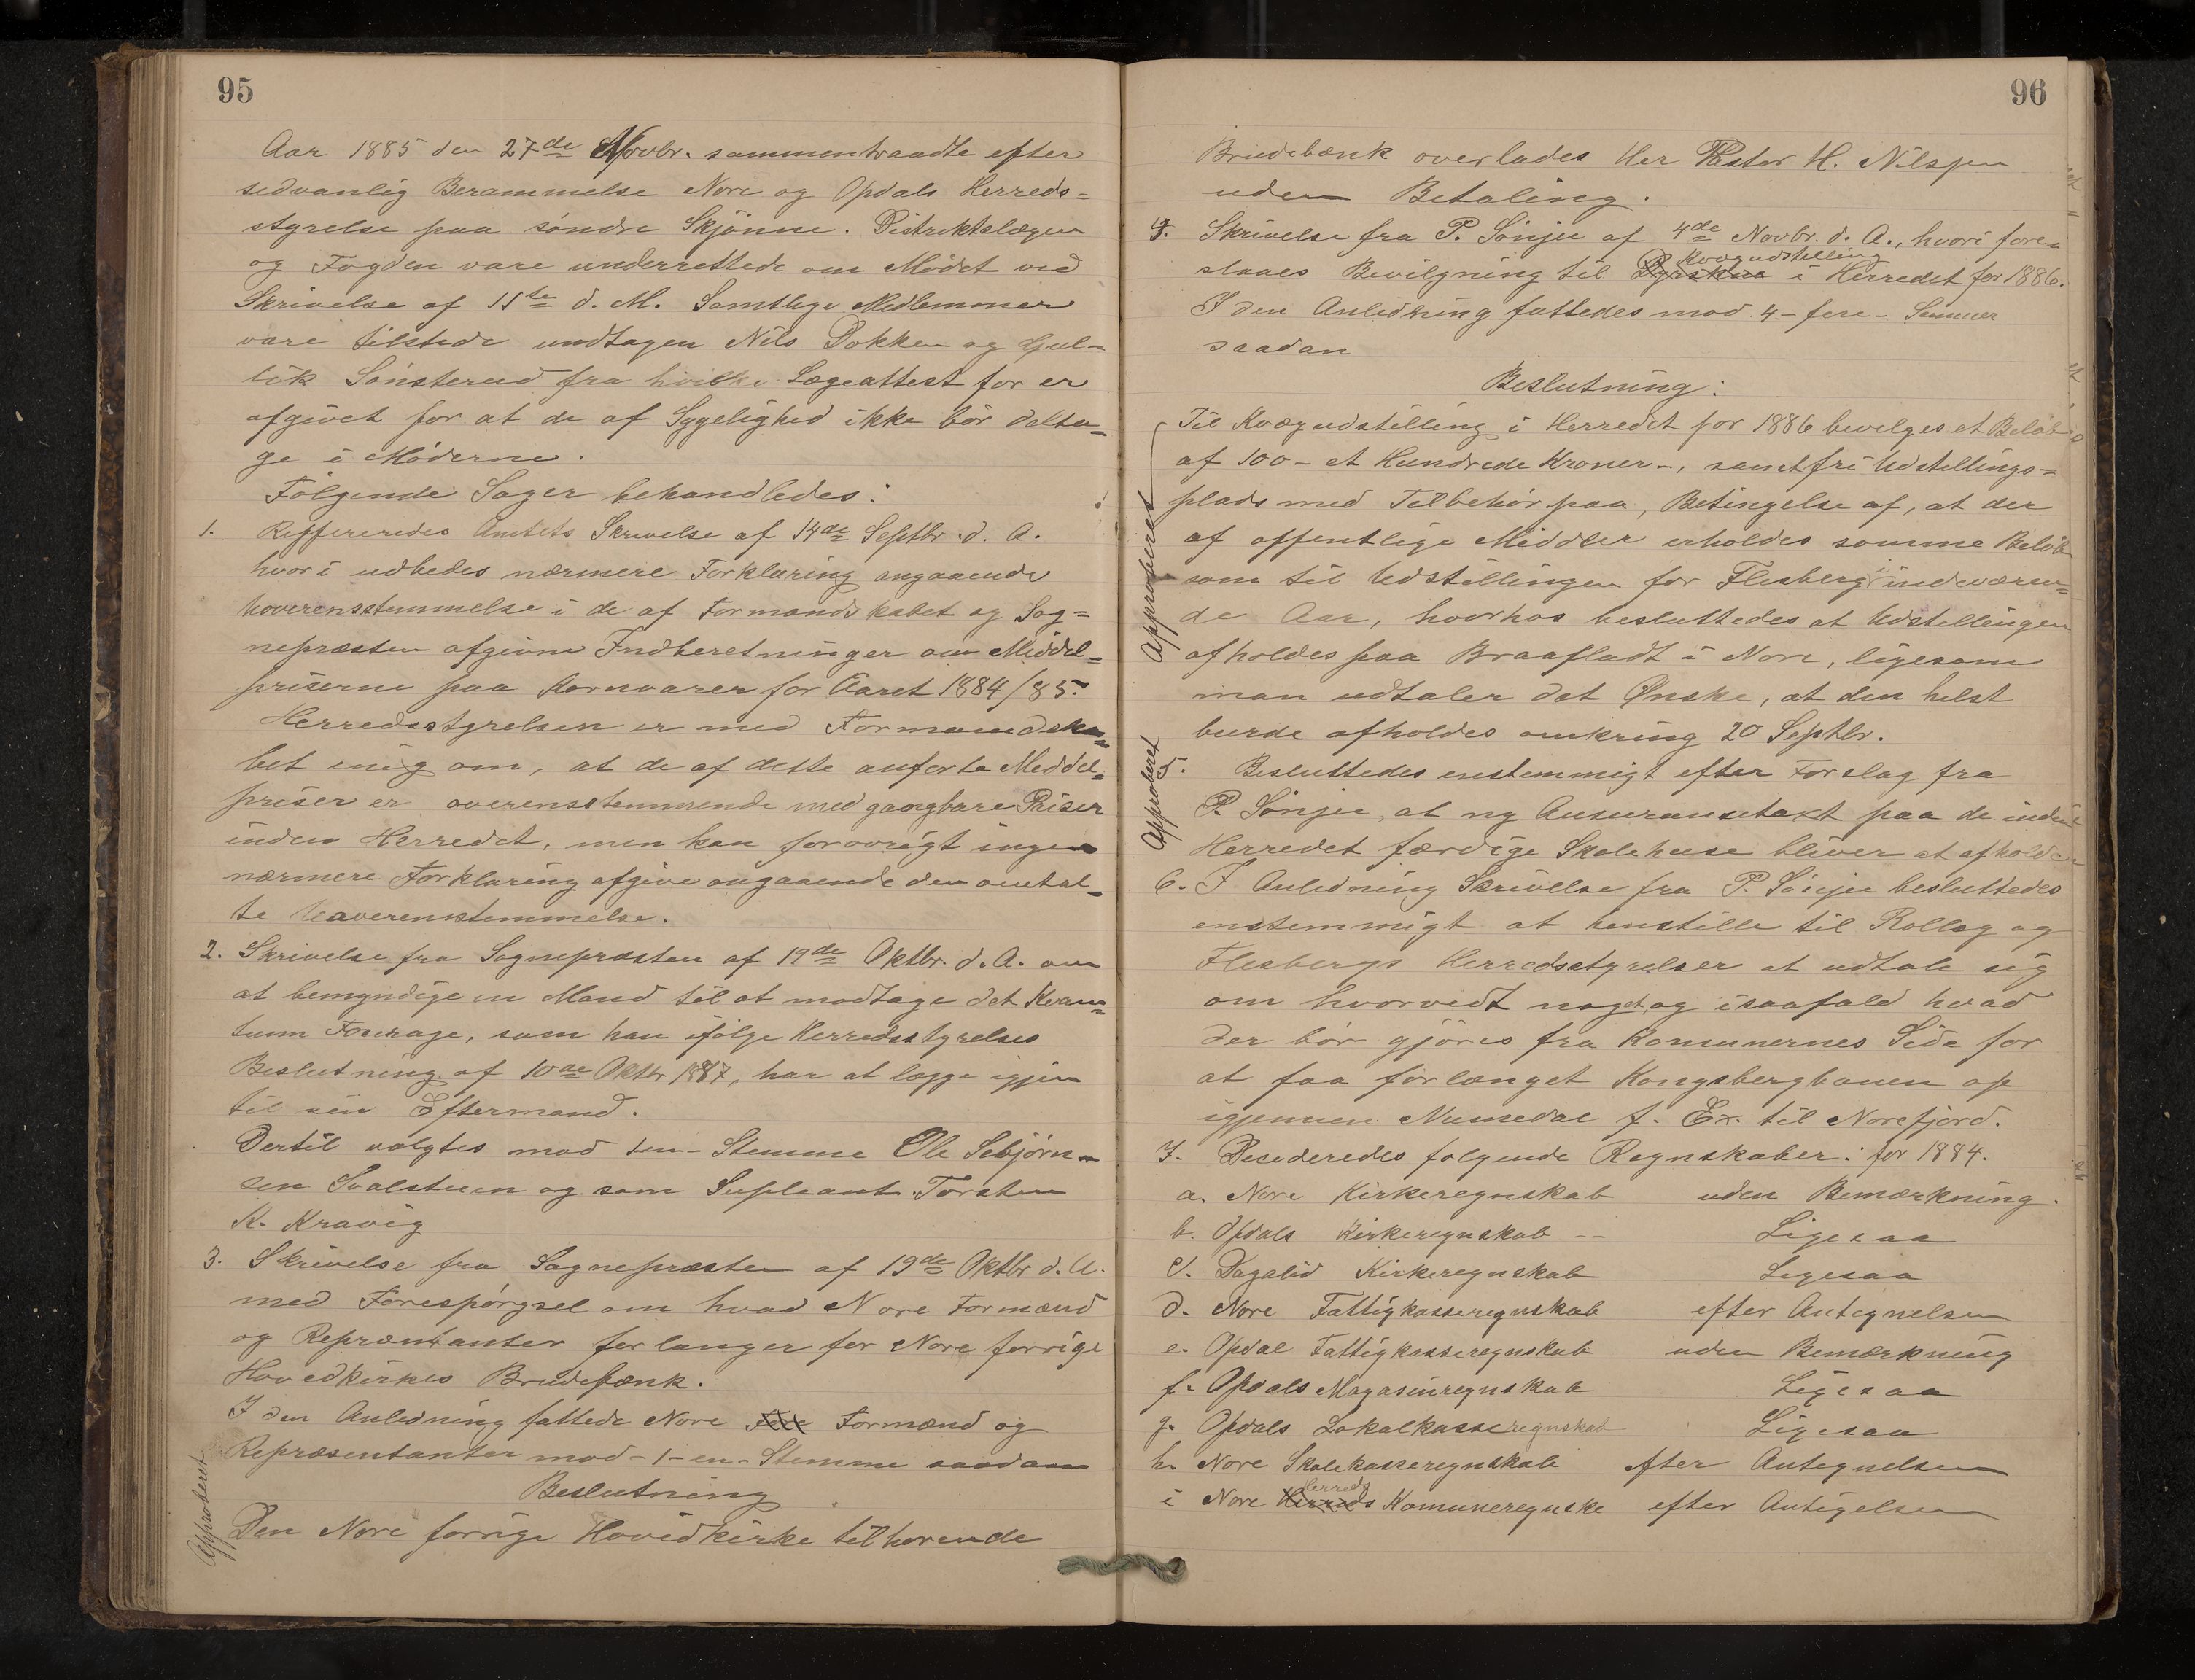 95
Aar 1885 den 27de Novbr. sammentraadte efter
sedvanlig Berammelse Nore og Opdals Herreds=
styrelse paa söndre Skjönne. Distriktslægen
og Fogden vare underrettede om Mödet ved
Skrivelse af 11te d. M. Samtlige Medlemmer
vare tilstede undtagen Nils Dokken og Gul=
lik Sönsterud fra hvilke Lægeattest for er
afgivet for at de af Sygelighed ikke bör delta=
ge i Möderne.
Fölgende Sager behandledes:
1. Reffereredes Amtets Skrivelse af 14de Septbr. d. A.
hvori udbedes nærmere Forklaring angaaende
Uoverensstemmelse i de af Formandskabet og Sog=
nepræsten afgivne Indberetninger om Middel=
priserne paa Kornvarer for Aaret 1884/85.
Herredsstyrelsen er med Formandska=
bet enig om, at de af dette anforte Meddel=
priser er overensstemmende med gangbare Priser
inden Herredet, men kan forövrigt ingen
nærmere Forklaring afgive angaaende den omtal=
te Uaverensstemmelse.
2. Skrivelse fra Sognepræsten af 19de Oktbr. d. A. om
at bemyndige en Mand til at modtage det Kvan=
tum Fourage, som han ifölge Herredsstyrelses
Beslutning af 10de Oktbr 1887, har at lægge igjen
til sin Eftermand.
Dertil valgtes mod 1en- Stemme Ole Sebjörn=
sen Svalstuen og som Supleant Torsten
K. Kravig
3. Skrivelse fra Sognepræsten af 19de Oktbr d. A.
med Forespörgsel om hvad Nore Formænd
og Repræntanter forlanger for Nore forrige
Hovedkirkes Brudebænk.
I den Anledning fattede Nore Formænd og
Repræsentanter mod - 1 - en - Stemme saadan
Beslutning
Approberet
Den Nore forrige Hovedkirke tilhorende
96
Brudebænk overlades Her Pastor H. Nilssen
uden Betaling.
4. Skrivelse fra P. Sönju af 4de Novbr. d. A., hvori fore=
Kvægudstilling
slaaes Bevilgning til Dyrskue i Herredet for 1886.
I den Anledning fattedes mod 4 - fire - Stemmer
saadan
Beslutning:
Til Kvægudstilling i Herredet for 1886 bevilges et Belöb
af 100 - et Hundrede Kroner -, samt fri Udstillings=
plads med Tilbehör paa, Betingelse af, at der
af offentlige Middler erholdes samme Belöb
som til Udstillingen for Flesberg i indeværen=
de Aar, hvorhos besluttedes at Udstillingen
afholdes paa Braafladt i Nore, ligesom
man udtaler det Ønske, at den helst
burde afholdes omkring 20 Septbr.
Approberet
5. Besluttedes enstemmigt efter Forslag fra
P. Sönju, at ny Ansuransetakt paa de inden
Herredet færdige Skolehuse bliver at afholde
Approberet
6. I Anledning Skrivelse fra P. Sönju besluttedes
enstemmigt at henstille til Rollag og
Flesbergs Herredsstyrelser at udtale sig
om hvorvidt noget og isaafald hvad
der bör gjöres fra Komunernes Side for
at faa forlænget Kongsbergbanen op
igjennem Numedal f. Ex. til Norefjord.
7. Desederedes folgende Regnskaber: for 1884.
a. Nore Kirkeregnskab uden Bemærkning.
b. Opdals Kirkeregnskab -- Ligesaa
c. Dagalid Kirkeregnskab Ligesaa
d. Nore Fattigkasseregnskab efter Antegnelsen
e. Opdal Fattigkasseregnskab uden Bemærkning
f. Opdals Magasinregnskab Ligesaa
g. Opdals Lokalkasseregnskab Ligesaa
h. Nore Skolekasseregnskab efter Antegnelsen
Herreds
i Nore Herreds Komuneregnske efter Antigelsen